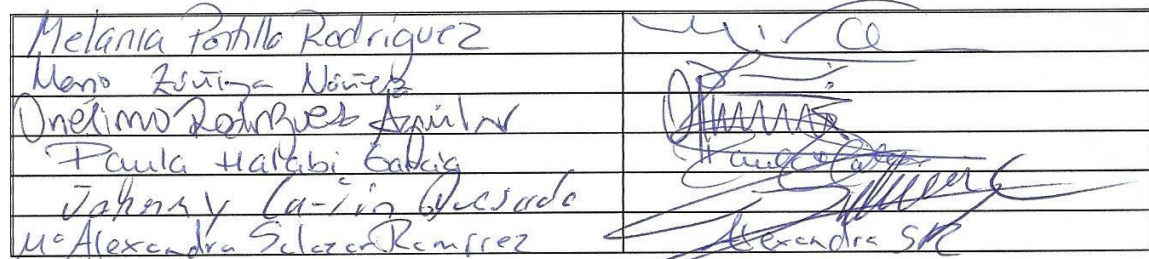 Melania Portillo Rodriguez
Mario Zúñiga Núñez
Onésimo Rodríguez Aguilar
Paula Halabi García
Johnny Quesada
Mª Alexandra Salazar Ramírez Alexandra SR